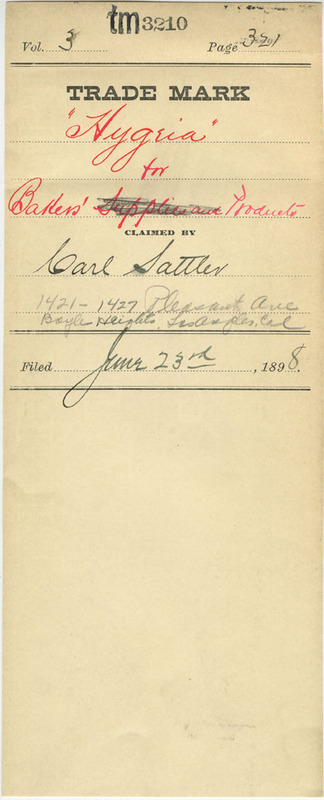 tm3210
Vol. 3 Page 321
TRADE MARK
"Hygeia"
for
Bakers' Supplies and Products
CLAIMED BY
Carl Sattler
1421-1427 Pleasant Ave
Boyle Heights Los Angeles, Cal
Filed June 23rd, 1898.